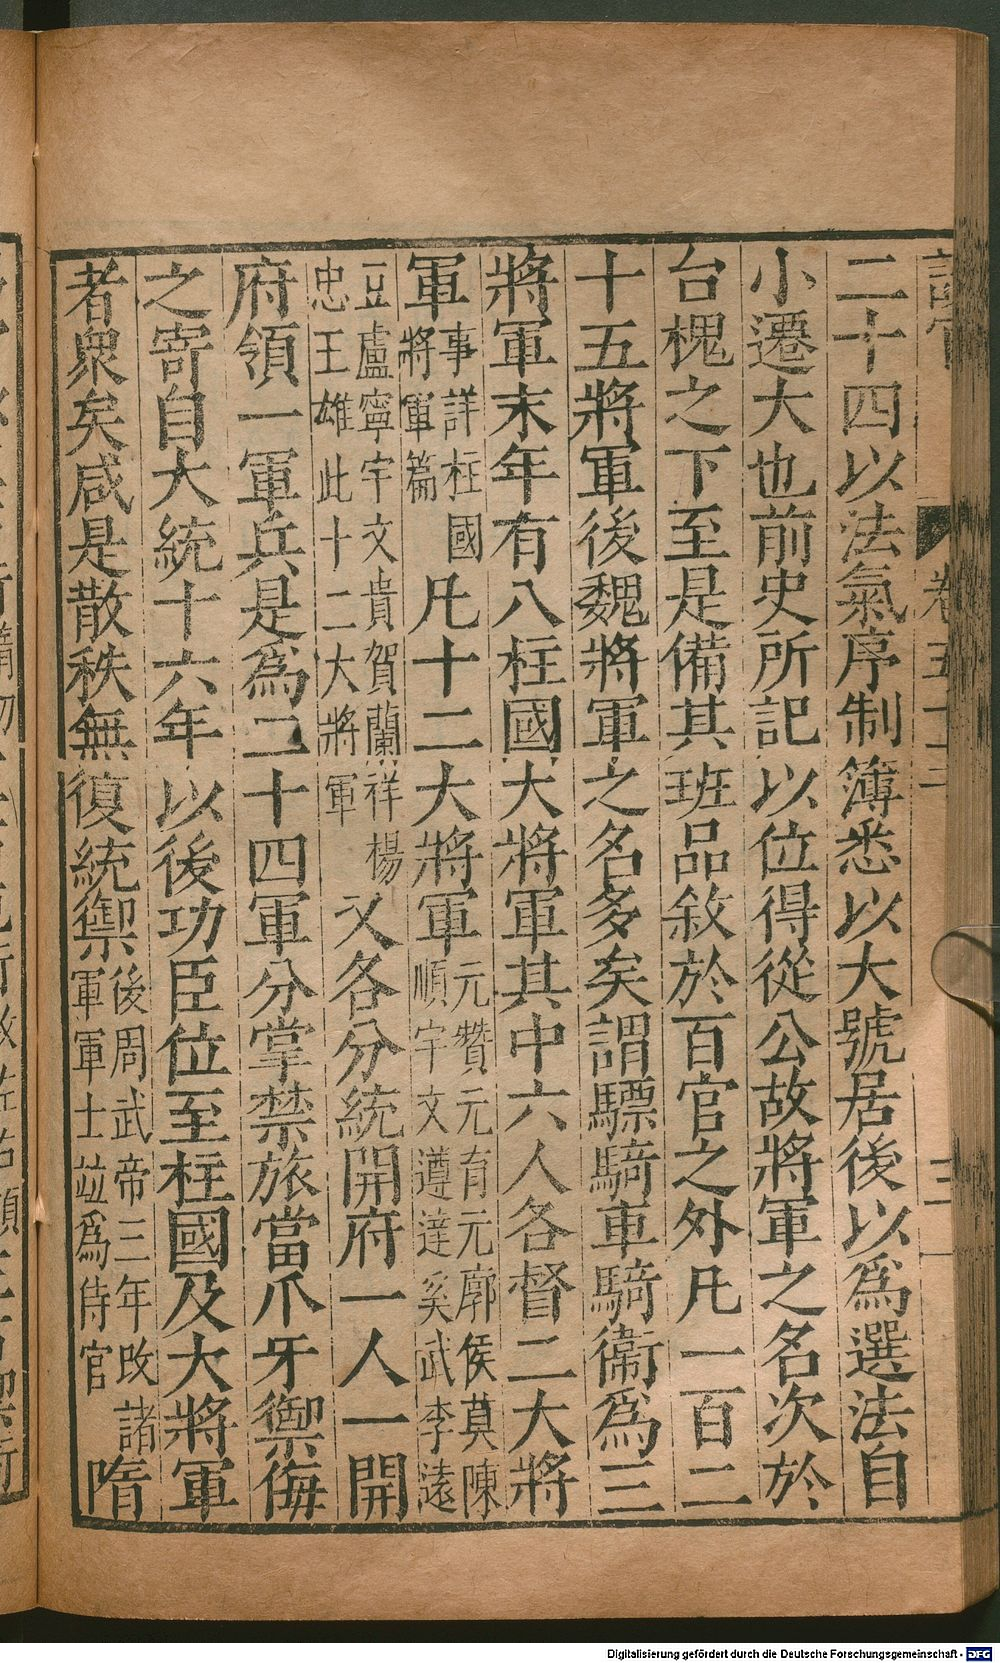 二十四以法氣序制簿悉以大號居後以爲選法自
小遷大也前史所記以位得從公故將軍之名次於
台槐之下至是備其班品敘於百官之外凡一百二
十五將軍後魏將軍之名多矣謂驃騎車騎衞爲三
將軍末年有八柱國大將軍其中六人各督二大將
軍
事詳柱國
將軍篇
凡十二大將軍
元贊元有元廓侯莫陳
順宇文遵達奚武李遠
豆盧寧宇文貴賀蘭祥楊
忠王雄此十二大將軍
又各分統開府一人一開
府領一軍兵是爲二十四軍分掌禁旅當爪牙禦侮
之寄自大統十六年以後功臣位至柱國及大將軍
者衆矣咸是散秩無復統禦
後周武帝三年改諸
軍軍士竝爲侍官
隋
Digitalisierung gefördert durch die Deutsche Forschungsgemeinschaft - DFG